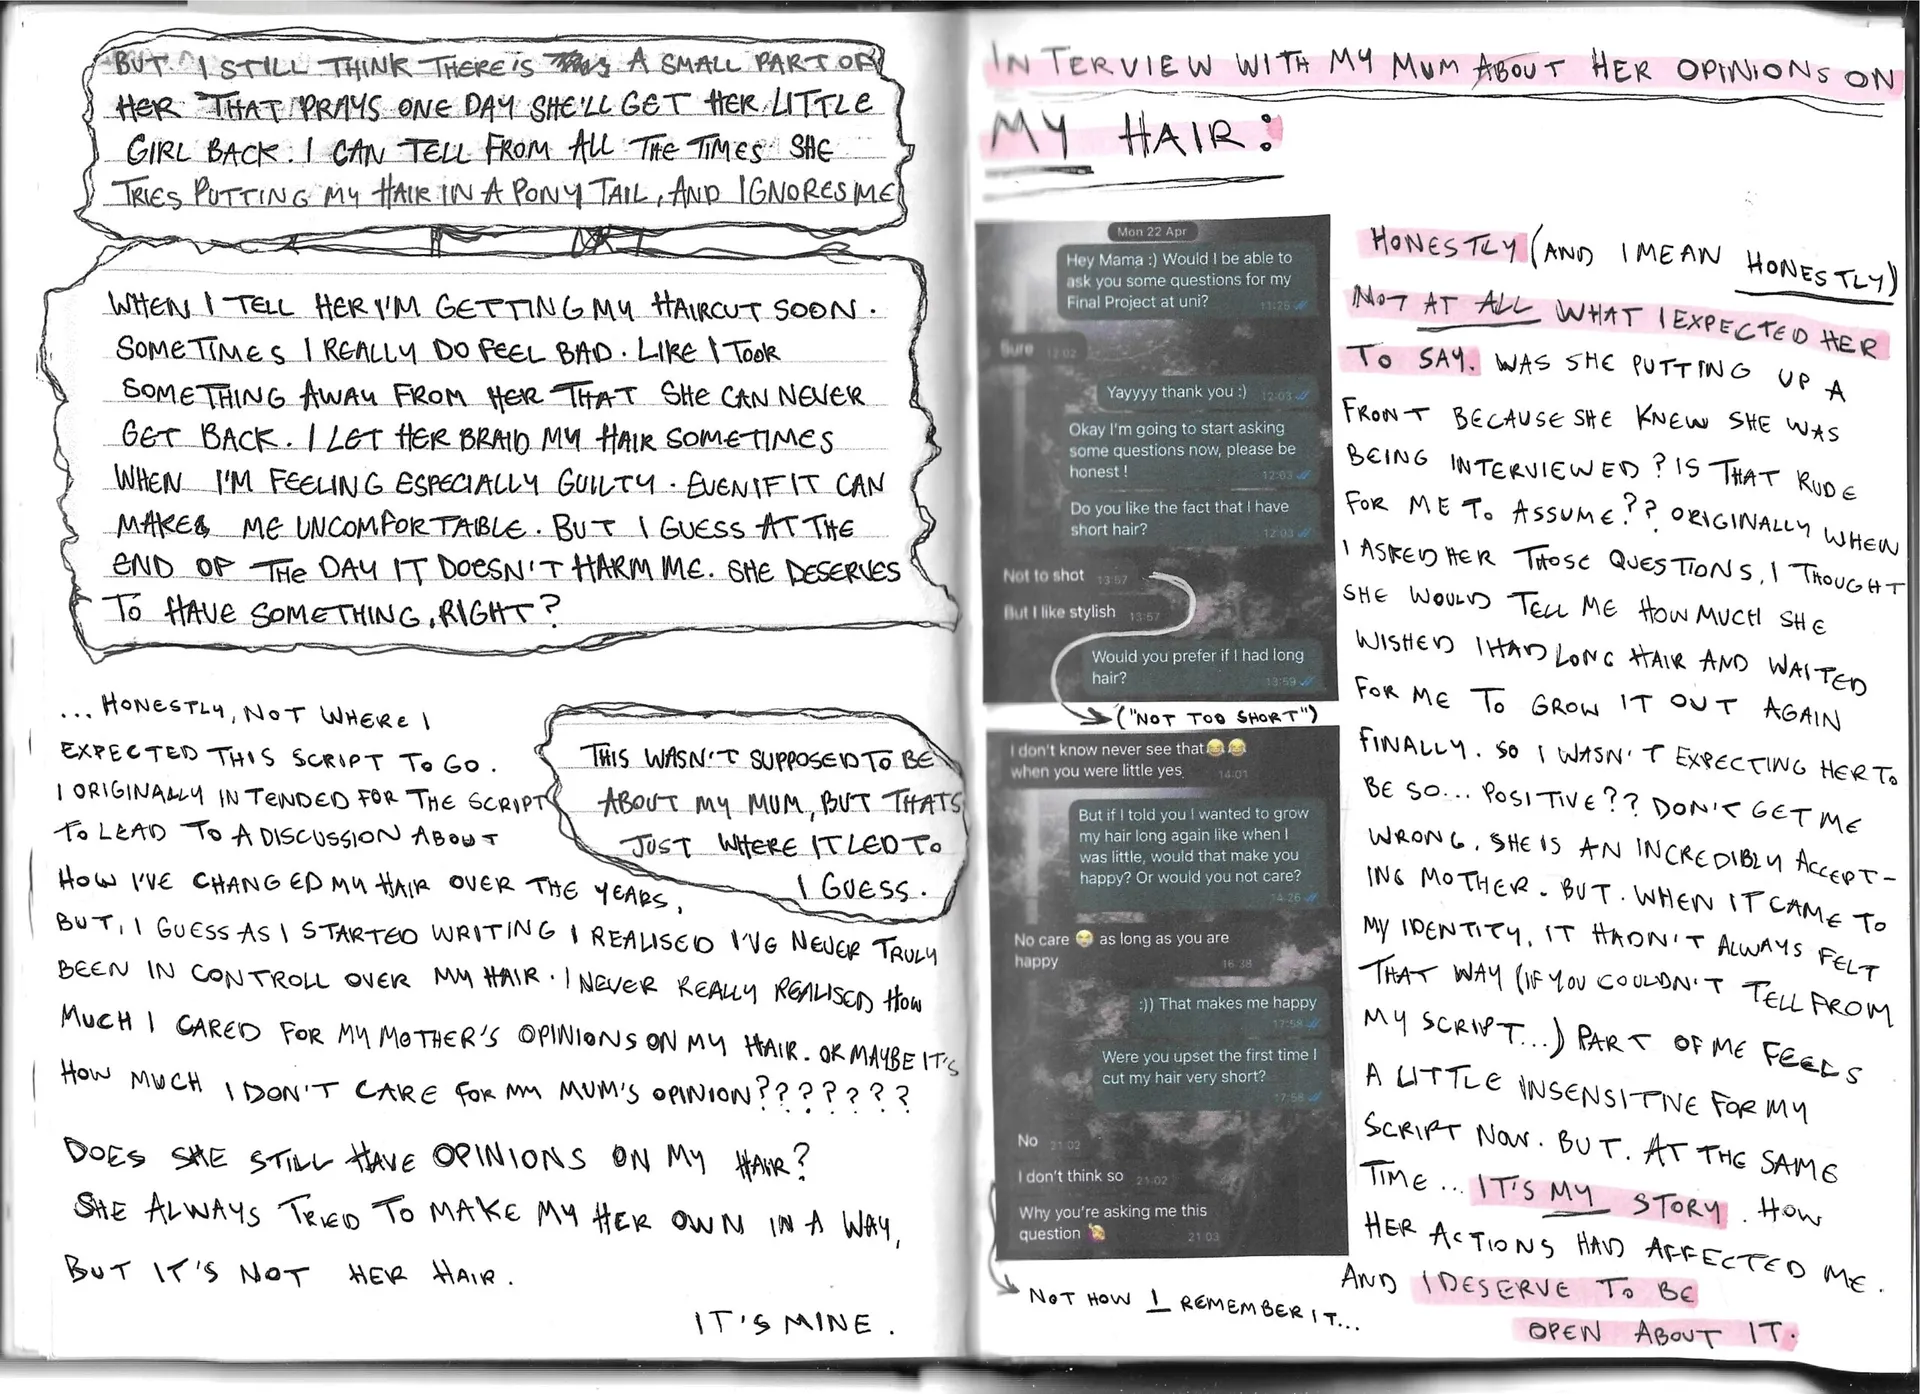 BUT. I STILL THINK THERE'S A SMALL PART OF
HER THAT PRAYS ONE DAY SHE'LL GET HER LITTLE
GIRL BACK. I CAN TELL FROM ALL THE TIMES SHE
TRIES PUTTING MY HAIR IN A PONY TAIL, AND IGNORES ME
WHEN I TELL HER I'M GETTING MY HAIRCUT SOON.
SOMETIMES I REALLY DO FEEL BAD. LIKE I TOOK
SOMETHING AWAY FROM HER THAT SHE CAN NEVER
GET BACK. I LET HER BRAID MY HAIR SOMETIMES
WHEN I'M FEELING ESPECIALLY GUILTY. EVEN IF IT CAN
MAKE ME UNCOMFORTABLE. BUT I GUESS AT THE
END OF THE DAY IT DOESN'T HARM ME. SHE DESERVES
TO HAVE SOMETHING, RIGHT?
... HONESTLY, NOT WHERE I
EXPECTED THIS SCRIPT TO GO.
I ORIGINALLY INTENDED FOR THE SCRIPT
TO LEAD TO A DISCUSSION ABOUT
HOW I'VE CHANGED MY HAIR OVER THE YEARS,
BUT, I GUESS AS I STARTED WRITING I REALISED I'VE NEVER TRULY
BEEN IN CONTROLL OVER MY HAIR. I NEVER REALLY REALISED HOW
MUCH I CARED FOR MY MOTHER'S OPINIONS ON MY HAIR. OR MAYBE IT'S
HOW MUCH I DON'T CARE FOR MY MUM'S OPINION???????
THIS WASN'T SUPPOSED TO BE
ABOUT MY MUM, BUT THATS
JUST WHERE IT LED TO
I GUESS.
DOES SHE STILL HAVE OPINIONS ON MY HAIR?
SHE ALWAYS TRIED TO MAKE MY HER OWN IN A WAY,
BUT IT'S NOT HER HAIR.
IT'S MINE.
INTERVIEW WITH MY MUM ABOUT HER OPINIONS ON
MY HAIR:
Mon 22 Apr
Hey Mama :) Would I be able to
ask you some questions for my
Final Project at uni?
11:26
Sure 12:02
Yayyyy thank you :) 12:03
Okay I'm going to start asking
some questions now, please be
honest !
12:03
Do you like the fact that I have
short hair?
12:03
Not to shot 13:57
But I like stylish 13:57
Would you prefer if I had long
hair?
13:59
("NOT TOO SHORT")
I don't know never see that😂😂
when you were little yes
14:01
But if I told you I wanted to grow
my hair long again like when I
was little, would that make you
happy? Or would you not care?
14:26
No care 😂 as long as you are
happy
16:38
:)) That makes me happy
17:58
Were you upset the first time I
cut my hair very short?
17:58
No 21:02
I don't think so 21:02
Why you're asking me this
question
21:03
NOT HOW I REMEMBER IT...
HONESTLY (AND I MEAN HONESTLY)
NOT AT ALL WHAT I EXPECTED HER
TO SAY. WAS SHE PUTTING UP A
FRONT BECAUSE SHE KNEW SHE WAS
BEING INTERVIEWED? IS THAT RUDE
FOR ME TO ASSUME?? ORIGINALLY WHEN
I ASKED HER THOSE QUESTIONS, I THOUGHT
SHE WOULD TELL ME HOW MUCH SHE
WISHED I HAD LONG HAIR AND WAITED
FOR ME TO GROW IT OUT AGAIN
FINALLY. SO I WASN'T EXPECTING HER TO
BE SO... POSITIVE?? DON'T GET ME
WRONG. SHE IS AN INCREDIBLY ACCEPT-
ING MOTHER. BUT. WHEN IT CAME TO
MY IDENTITY, IT HADN'T ALWAYS FELT
THAT WAY (IF YOU COULDN'T TELL FROM
MY SCRIPT...) PART OF ME FEELS
A LITTLE INSENSITIVE FOR MY
SCRIPT NOW. BUT. AT THE SAME
TIME... IT'S MY STORY. HOW
HER ACTIONS HAD AFFECTED ME.
AND I DESERVE TO BE
OPEN ABOUT IT.